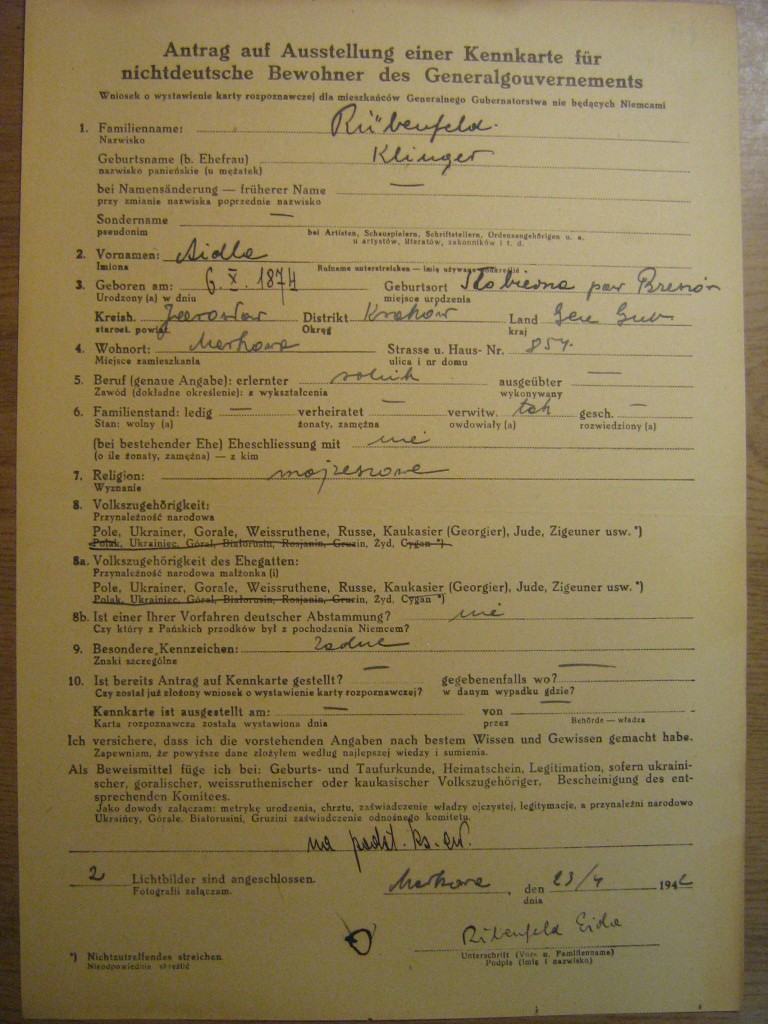 Antrag auf Ausstellung einer Kennkarte für
nichtdeutsche Bewohner des Generalgouvernements
Wniosek o wystawienie karty rozpoznawczej dla mieszkańców Generalnego Gubernatorstwa nie będących Niemcami
1. Familienname: Rübenfeld
Nazwisko
Geburtsname (b. Ehefrau) Klinger
nazwisko panieńskie (u mężatek)
bei Namensänderung — früherer Name —
przy zmianie nazwiska poprzednie nazwisko
Sondername —
pseudonim bei Artisten, Schauspielern, Schriftstellern, Ordensangehörigen u. a.
u artystów, literatów, zakonników i t. d.
2. Vornamen: Aidla
Imiona Rufname unterstreichen — imię używane podkreślić
3. Geboren am: 6. X. 1874 Geburtsort pow
Urodzony (a) w dniu miejsce urodzenia
Kreish. Jarosław Distrikt Kraków Land Gen Gub
starost. powiat Okręg kraj
4. Wohnort: Markowa Strasse u. Haus- Nr. 857
Miejsce zamieszkania ulica i nr domu
5. Beruf (genaue Angabe): erlernter rolnik ausgeübter —
Zawód (dokładne określenie): z wykształcenia wykonywany
6. Familienstand: ledig — verheiratet — verwitw. tak gesch. —
Stan: wolny (a) żonaty, zamężna owdowiały (a) rozwiedziony (a)
(bei bestehender Ehe) Eheschliessung mit nie
(o ile żonaty, zamężna) — z kim
7. Religion: mojżeszowe
Wyznanie
8. Volkszugehörigkeit:
Przynależność narodowa
Pole, Ukrainer, Gorale, Weissruthene, Russe, Kaukasier (Georgier), Jude, Zigeuner usw. *)
Polak, Ukrainiec, Góral, Białorusin, Rosjanin, Gruzin, Żyd, Cygan *)
8a. Volkszugehörigkeit des Ehegatten:
Przynależność narodowa małżonka (i)
Pole, Ukrainer, Gorale, Weissruthene, Russe, Kaukasier (Georgier), Jude, Zigeuner usw. *)
Polak, Ukrainiec, Góral, Białorusin, Rosjanin, Gruzin, Żyd, Cygan *)
8b. Ist einer Ihrer Vorfahren deutscher Abstammung? nie
Czy który z Pańskich przodków był z pochodzenia Niemcem?
9. Besondere Kennzeichen: żadne
Znaki szczególne
10. Ist bereits Antrag auf Kennkarte gestellt? — gegebenenfalls wo? —
Czy został już złożony wniosek o wystawienie karty rozpoznawczej? w danym wypadku gdzie?
Kennkarte ist ausgestellt am: — von —
Karta rozpoznawcza została wystawiona dnia przez Behörde — władza
Ich versichere, dass ich die vorstehenden Angaben nach bestem Wissen und Gewissen gemacht habe.
Zapewniam, że powyższe dane złożyłem według najlepszej wiedzy i sumienia.
Als Beweismittel füge ich bei: Geburts- und Taufurkunde, Heimatschein, Legitimation, sofern ukraini-
scher, goralischer, weissruthenischer oder kaukasischer Volkszugehöriger, Bescheinigung des ent-
sprechenden Komitees.
Jako dowody załączam: metrykę urodzenia, chrztu, zaświadczenie władzy ojczystej, legitymacje, a przynależni narodowo
Ukraińcy, Górale, Białorusini, Gruzini zaświadczenie odnośnego komitetu.
na podst. ks. ew.
2 Lichtbilder sind angeschlossen.
Fotografii załączam.
Markowa, den 23/4 1942
dnia
Ribenfeld Eida
Unterschrift (Vor- u. Familienname)
Podpis (imię i nazwisko)
*) Nichtzutreffendes streichen
Nieodpowiednie skreślić